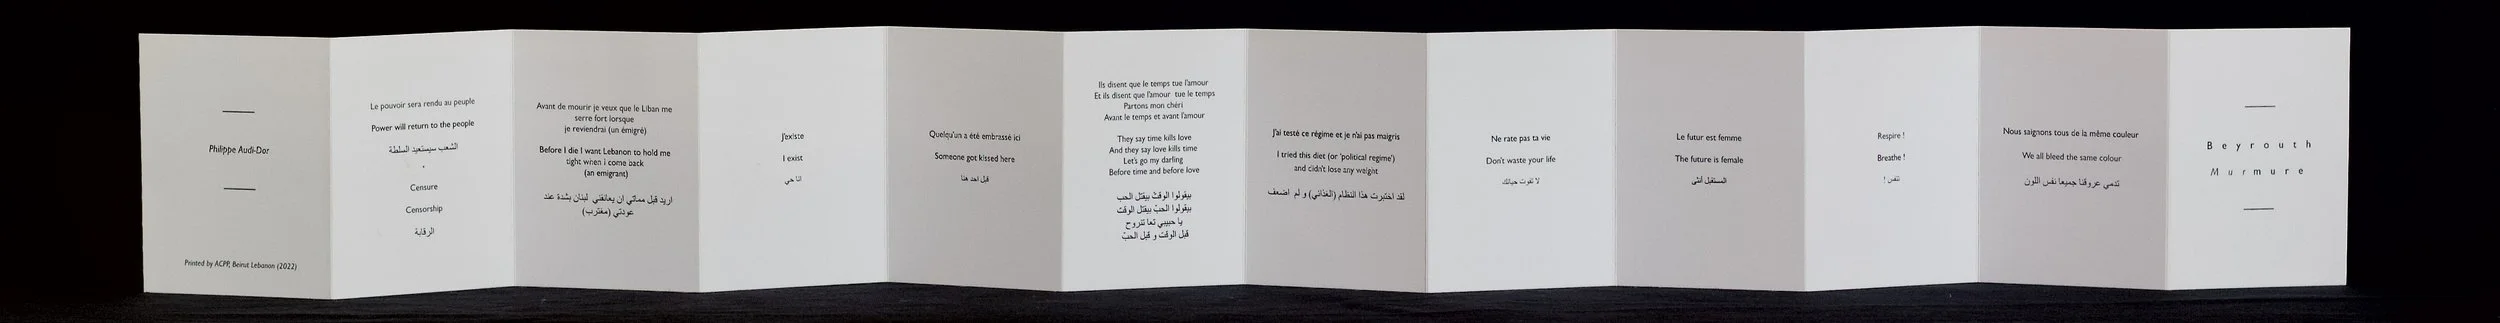 Philippe Audi-Dor
Printed by ACPP, Beirut Lebanon (2022)
Le pouvoir sera rendu au peuple
Power will return to the people
الشعب سيستعيد السلطة
*
Censure
Censorship
الرقابة
Avant de mourir je veux que le Liban me
serre fort lorsque
je reviendrai (un émigré)
Before I die I want Lebanon to hold me
tight when I come back
(an emigrant)
اريد قبل مماتي ان يعانقني لبنان بشدة عند
عودتي (مغترب)
J'existe
I exist
انا حي
Quelqu'un a été embrassé ici
Someone got kissed here
قبل احد هنا
Ils disent que le temps tue l'amour
Et ils disent que l'amour tue le temps
Partons mon chéri
Avant le temps et avant l'amour
They say time kills love
And they say love kills time
Let's go my darling
Before time and before love
بيقولوا الوقت بيقتل الحب
بيقولوا الحبّ بيقتل الوقت
يا حبيبي تعا تنروح
قبل الوقت و قبل الحبّ
J'ai testé ce régime et je n'ai pas maigris
I tried this diet (or 'political regime')
and didn't lose any weight
لقد اختبرت هذا النظام (الغذائي) و لم اضعف
Ne rate pas ta vie
Don't waste your life
لا تفوت حياتك
Le futur est femme
The future is female
المستقبل أنثى
Respire !
Breathe !
تنفس !
Nous saignons tous de la même couleur
We all bleed the same colour
تدمي عروقنا جميعا نفس اللون
Beyrouth
Murmure